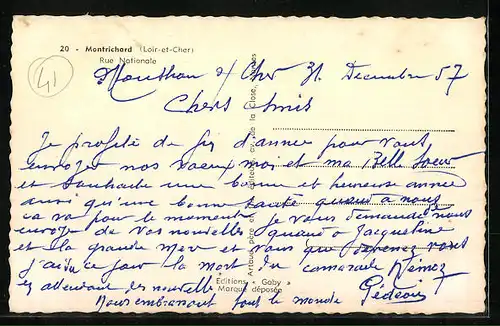 20 - Montrichard (Loir-et-Cher)
Rue Nationale
41
s/ Cher 31 Decembre 57
Chers Amis
Je profite de fin d'annee pour vous
envoyer nos vœux moi et ma Belle Soeur
et souhaite une bonne et heureuse année
ainsi qu'une bonne sante quand a nous
ca va pour le moment je vous demande nous
envoye de vos nouvelles quand a Jacqueline
et la grande Merr et vous que devenez vous
j'ai su ce jour la mort du camarade
en attendant des nouvelles Gédéon
Nous embrassons tout le monde
Artaud, père et
de la Close, Nantes
"Editions Gaby"
Marque déposée